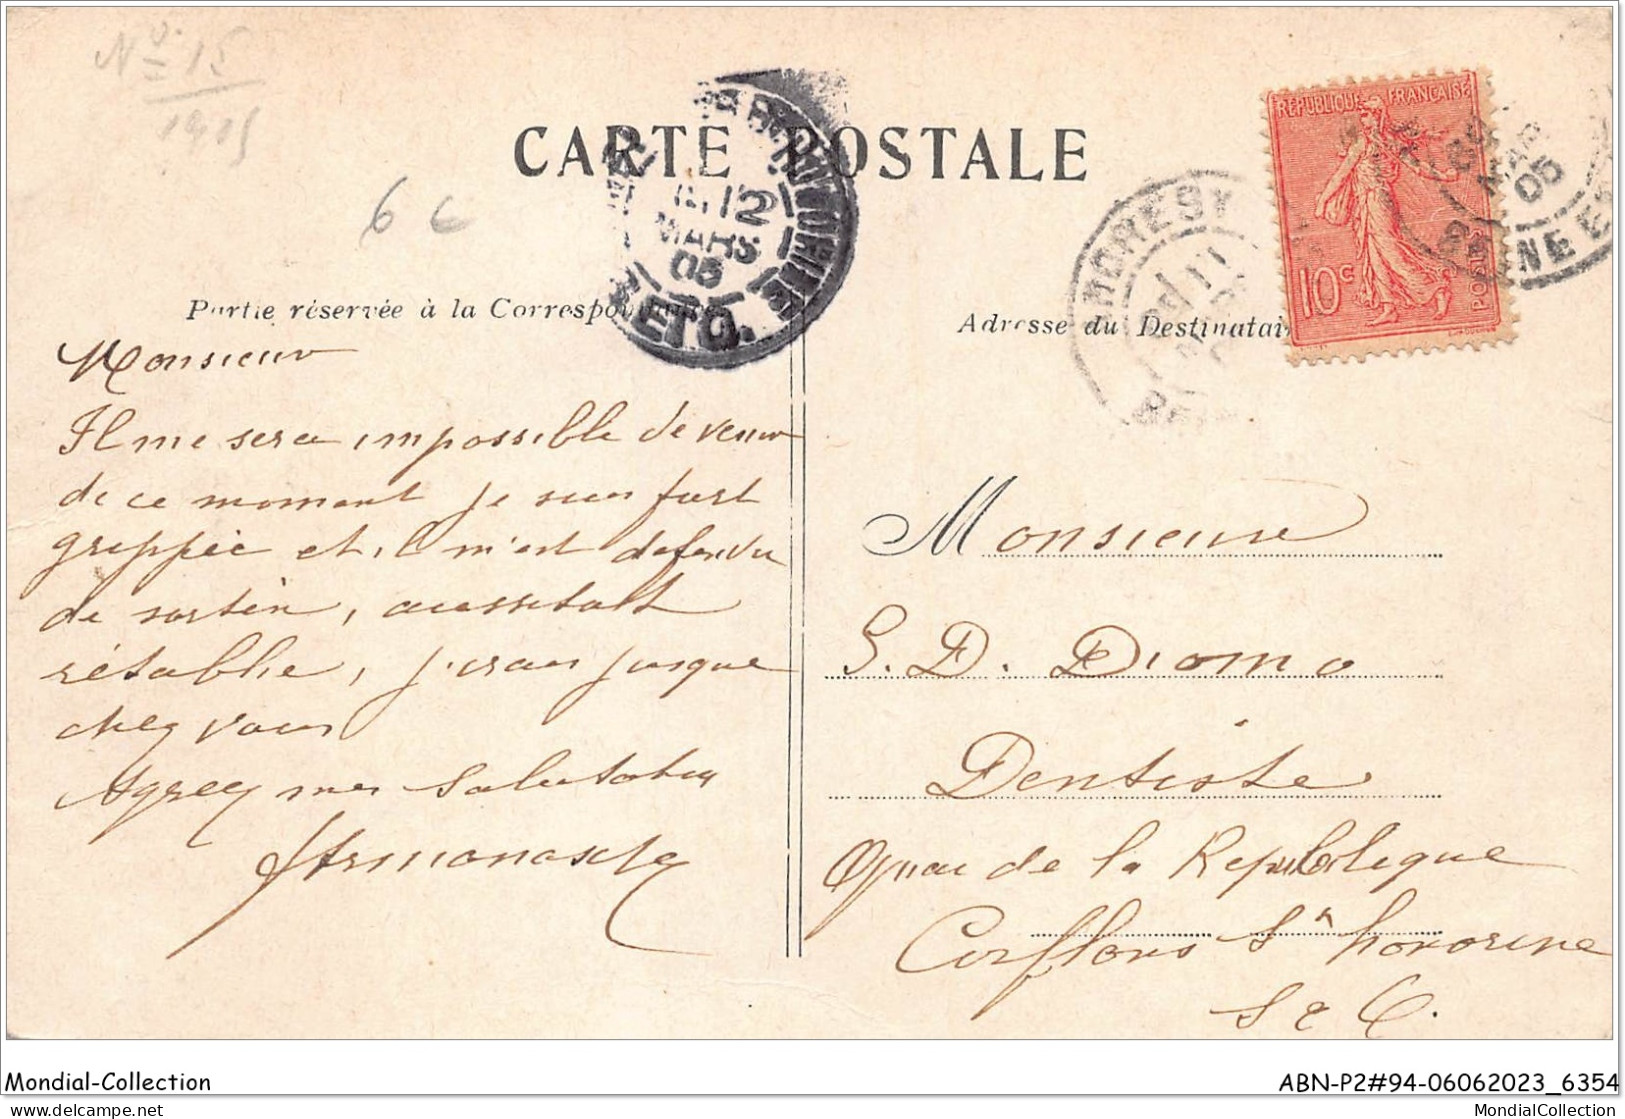 No 15
1905
6 €
CARTE POSTALE
12
MARS
05
S. ET O.
RÉPUBLIQUE FRANÇAISE
10c
POSTES
MAR
05
SEINE ET
Partie réservée à la Correspondance
Adresse du Destinataire
Monsieur
Il me sera impossible de venir
de ce moment je suis fort
grippée et, il m'est défendu
de sortir, aussitôt
rétablie, j'irai jusque
chez vous
Agréez mes salutations
Monsieur
S. D. Diomo
Dentiste
Quai de la République
Conflans Ste honorine
S & O.
Mondial-Collection
ABN-P2#94-06062023_6354
delcampe.net
MondialCollection